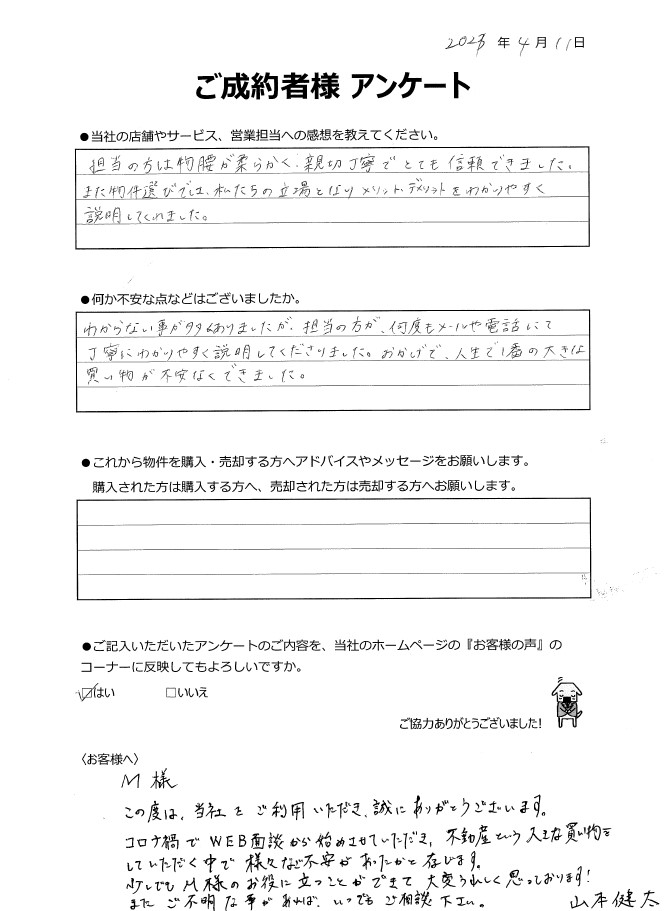 2023年4月11日
ご成約者様 アンケート
●当社の店舗やサービス、営業担当への感想を教えてください。
担当の方は物腰が柔らかく、親切丁寧でとても信頼できました。
また物件選びでは、私たちの立場となりメリット、デメリットをわかりやすく
説明してくれました。
●何か不安な点などはございましたか。
わからない事が多々ありましたが、担当の方が、何度もメールや電話にて
丁寧にわかりやすく説明してくださりました。おかげで、人生で1番の大きな
買い物が不安なくできました。
●これから物件を購入・売却する方へアドバイスやメッセージをお願いします。
購入された方は購入する方へ、売却された方は売却する方へお願いします。
●ご記入いただいたアンケートのご内容を、当社のホームページの『お客様の声』の
コーナーに反映してもよろしいですか。
☑はい □いいえ
ご協力ありがとうございました!
〈お客様へ〉
M 様
この度は、当社をご利用いただき、誠にありがとうございます。
コロナ禍でWEB面談から始めさせていただき、不動産という大きな買い物を
していただく中で様々なご不安があったかと存じます。
少しでもM様のお役に立つことができて大変うれしく思っております!
またご不明な事があれば、いつでもご相談下さい。 山本健太